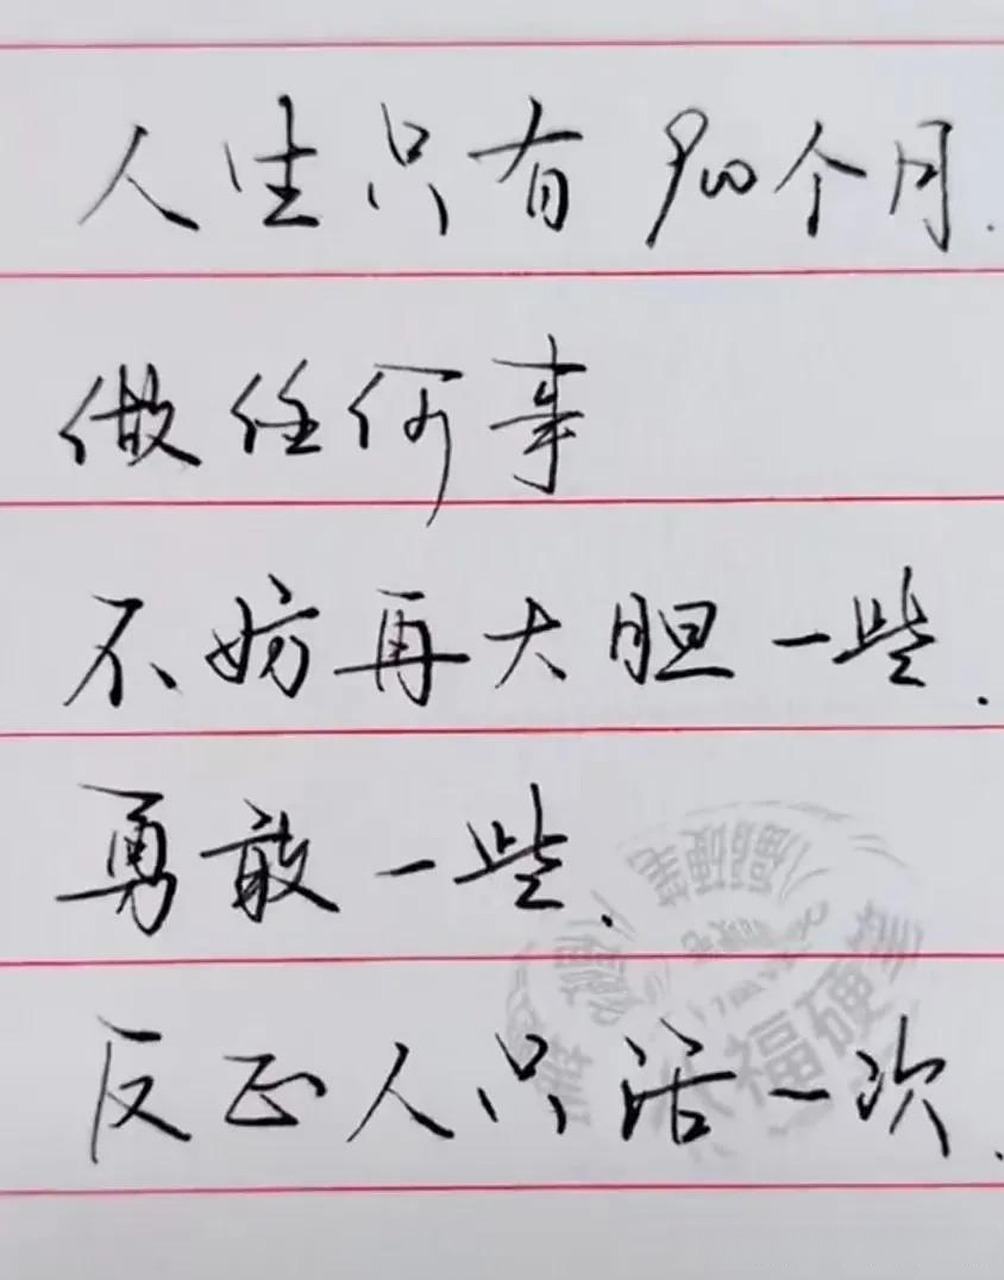 人生只有900个月.
做任何事
不妨再大胆一些.
勇敢一些.
反正人只活一次.
福硬